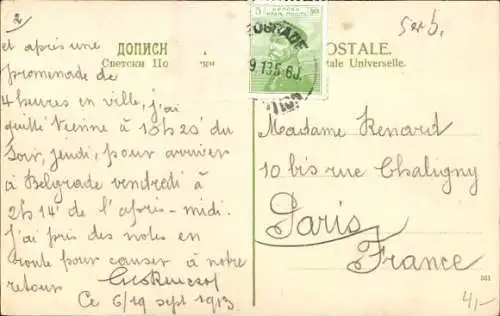 2
et après une
promenade de
4 heures en ville, j'ai
quitté Vienne à 10h 20' du
Soir, jeudi, pour arriver
à Belgrade vendredi à
2h 14' de l'après-midi.
J'ai pris des notes en
route pour causer à notre
retour
Ce 6/19 sept 1913
ДОПИСН
Светски По
5
50
Serb.
POSTALE.
tale Universelle.
Madame Renard
10 bis rue Chaligny
Paris
France
4,-